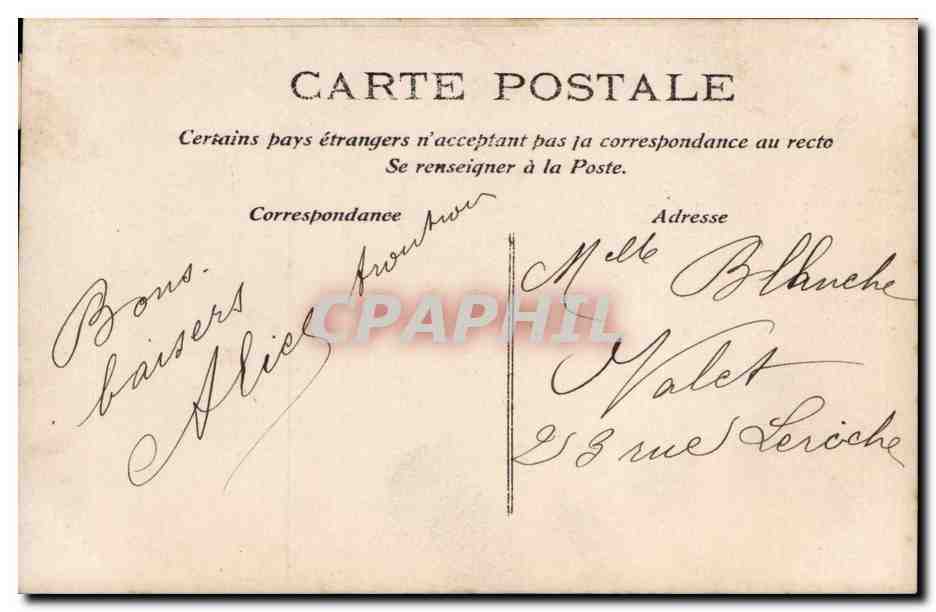 CARTE POSTALE
Certains pays étrangers n'acceptant pas la correspondance au recto
Se renseigner à la Poste.
Correspondance
Bons
baisers
Alice
Adresse
Melle Blanche
Valet
23 rue Leroche
CPAPHIL